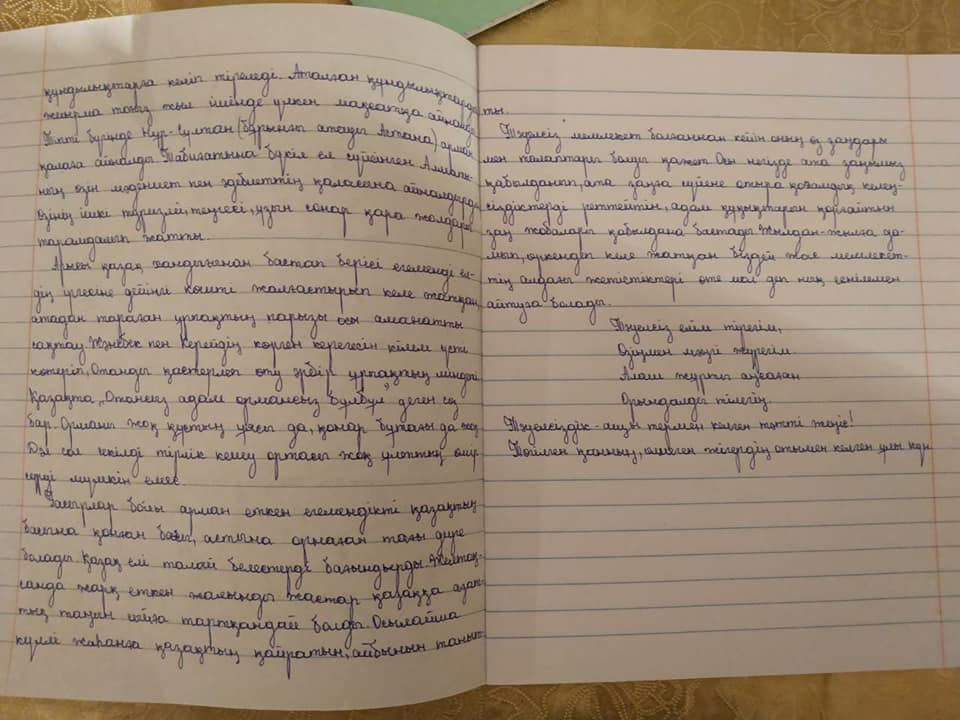 құндылықтарға келіп тіреледі. Аталған құндылықтарда
жиырма тоғыз жыл ішінде үлкен мақсатқа айналды
Тіпті бүгінде Нұр-Сұлтан (бұрынғы атауы Астана) арман
қалаға айналды. Табиғатына бүкіл ел сүйсінген Алматы-
ның өзін мәдениет пен әдебиеттің қаласына айналдырды
Өзінің ішкі туризмі, теңгесі, ұзын сонар қара жолдары
тарамдалып жатты.
Арысы қазақ хандығынан бастап берісі егеменді ел-
дің іргесіне дейінгі көшті жалғастырып келе жатқан,
атадан тараған ұрпақтың парызы осы аманатты
сақтау. Жәнібек пен Керейдің көрген керегесін кілем үсті
көтеріп, Отанды қастерлеп өту әрбір ұрпақтың міндеті
Қазақта „Отансыз адам ормансыз бұлбұл" деген сөз
бар. Орманы жоқ құстың ұясы да, қонар бұтағы да жоқ
Дәл сол секілді тірлік кешу ортасы жоқ ұлттың өмір
сүруі мүмкін емес.
Ғасырлар бойы арман еткен егемендікті қазақтың
басына қонған бағы, астына орнаған тағы деуге
болады. Қазақ елі талай белестерді бағындырды. Желтоқ-
санда жарқ еткен жалынды жастар қазаққа азат-
тық таңын сыйға тартқандай болды. Осылайша
күллі жаһанға қазақтың қайратын, айбынын таныт-
ты.
Тәуелсіз мемлекет болғаннан кейін оның өз заңдары
мен талаптары болуы қажет. Осы негізде ата заңымыз
қабылданып, ата заңға сүйене отыра қоғамдық келең-
сіздіктерді реттейтін, адам құқықтарын қорғайтын
заң жобалары қабылдана бастады. Жылдан-жылға да-
мып, өркендеп келе жатқан біздей жас мемлекет-
тің алдағы жетістіктері өте мол деп нық сеніммен
айтуға болады.
Тәуелсіз елім тірегім,
Өзіңмен мәңгі жүрегім.
Алаш жұрты аңсаған
Орындалды тілегің.
Тәуелсіздік - ащы термен келген тәтті жеңіс!
Төгілген қанның, сөнбеген жігердің отымен келген ұлы күн